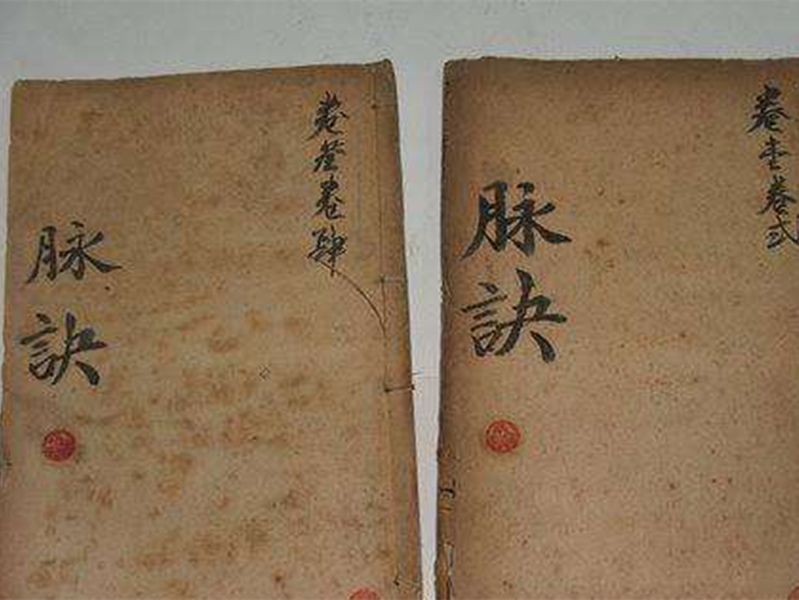 卷叁卷肆
脉
訣
卷壹卷弍
脉
訣